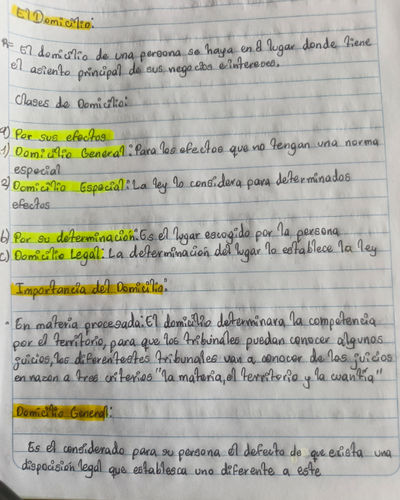 El Domicilio:
R= El domicilio de una persona se haya en el lugar donde tiene
el asiento principal de sus negocios e intereses.
Clases de Domicilio:
a) Por sus efectos
1) Domicilio General: Para los efectos que no tengan una norma
especial
2) Domicilio Especial: La ley lo considera para determinados
efectos
b) Por su determinación: Es el lugar escogido por la persona
c) Domicilio Legal: La determinación del lugar lo establece la ley
Importancia del Domicilio:
• En materia procesada: El domicilio determinara la competencia
por el territorio, para que los tribunales puedan conocer algunos
juicios, los diferentestes tribunales van a conocer de los juicios
en razon a tres criterios "la materia, el territorio y la cuantía"
Domicilio General:
Es el considerado para su persona el defecto de que exista una
disposición legal que establesca uno diferente a este